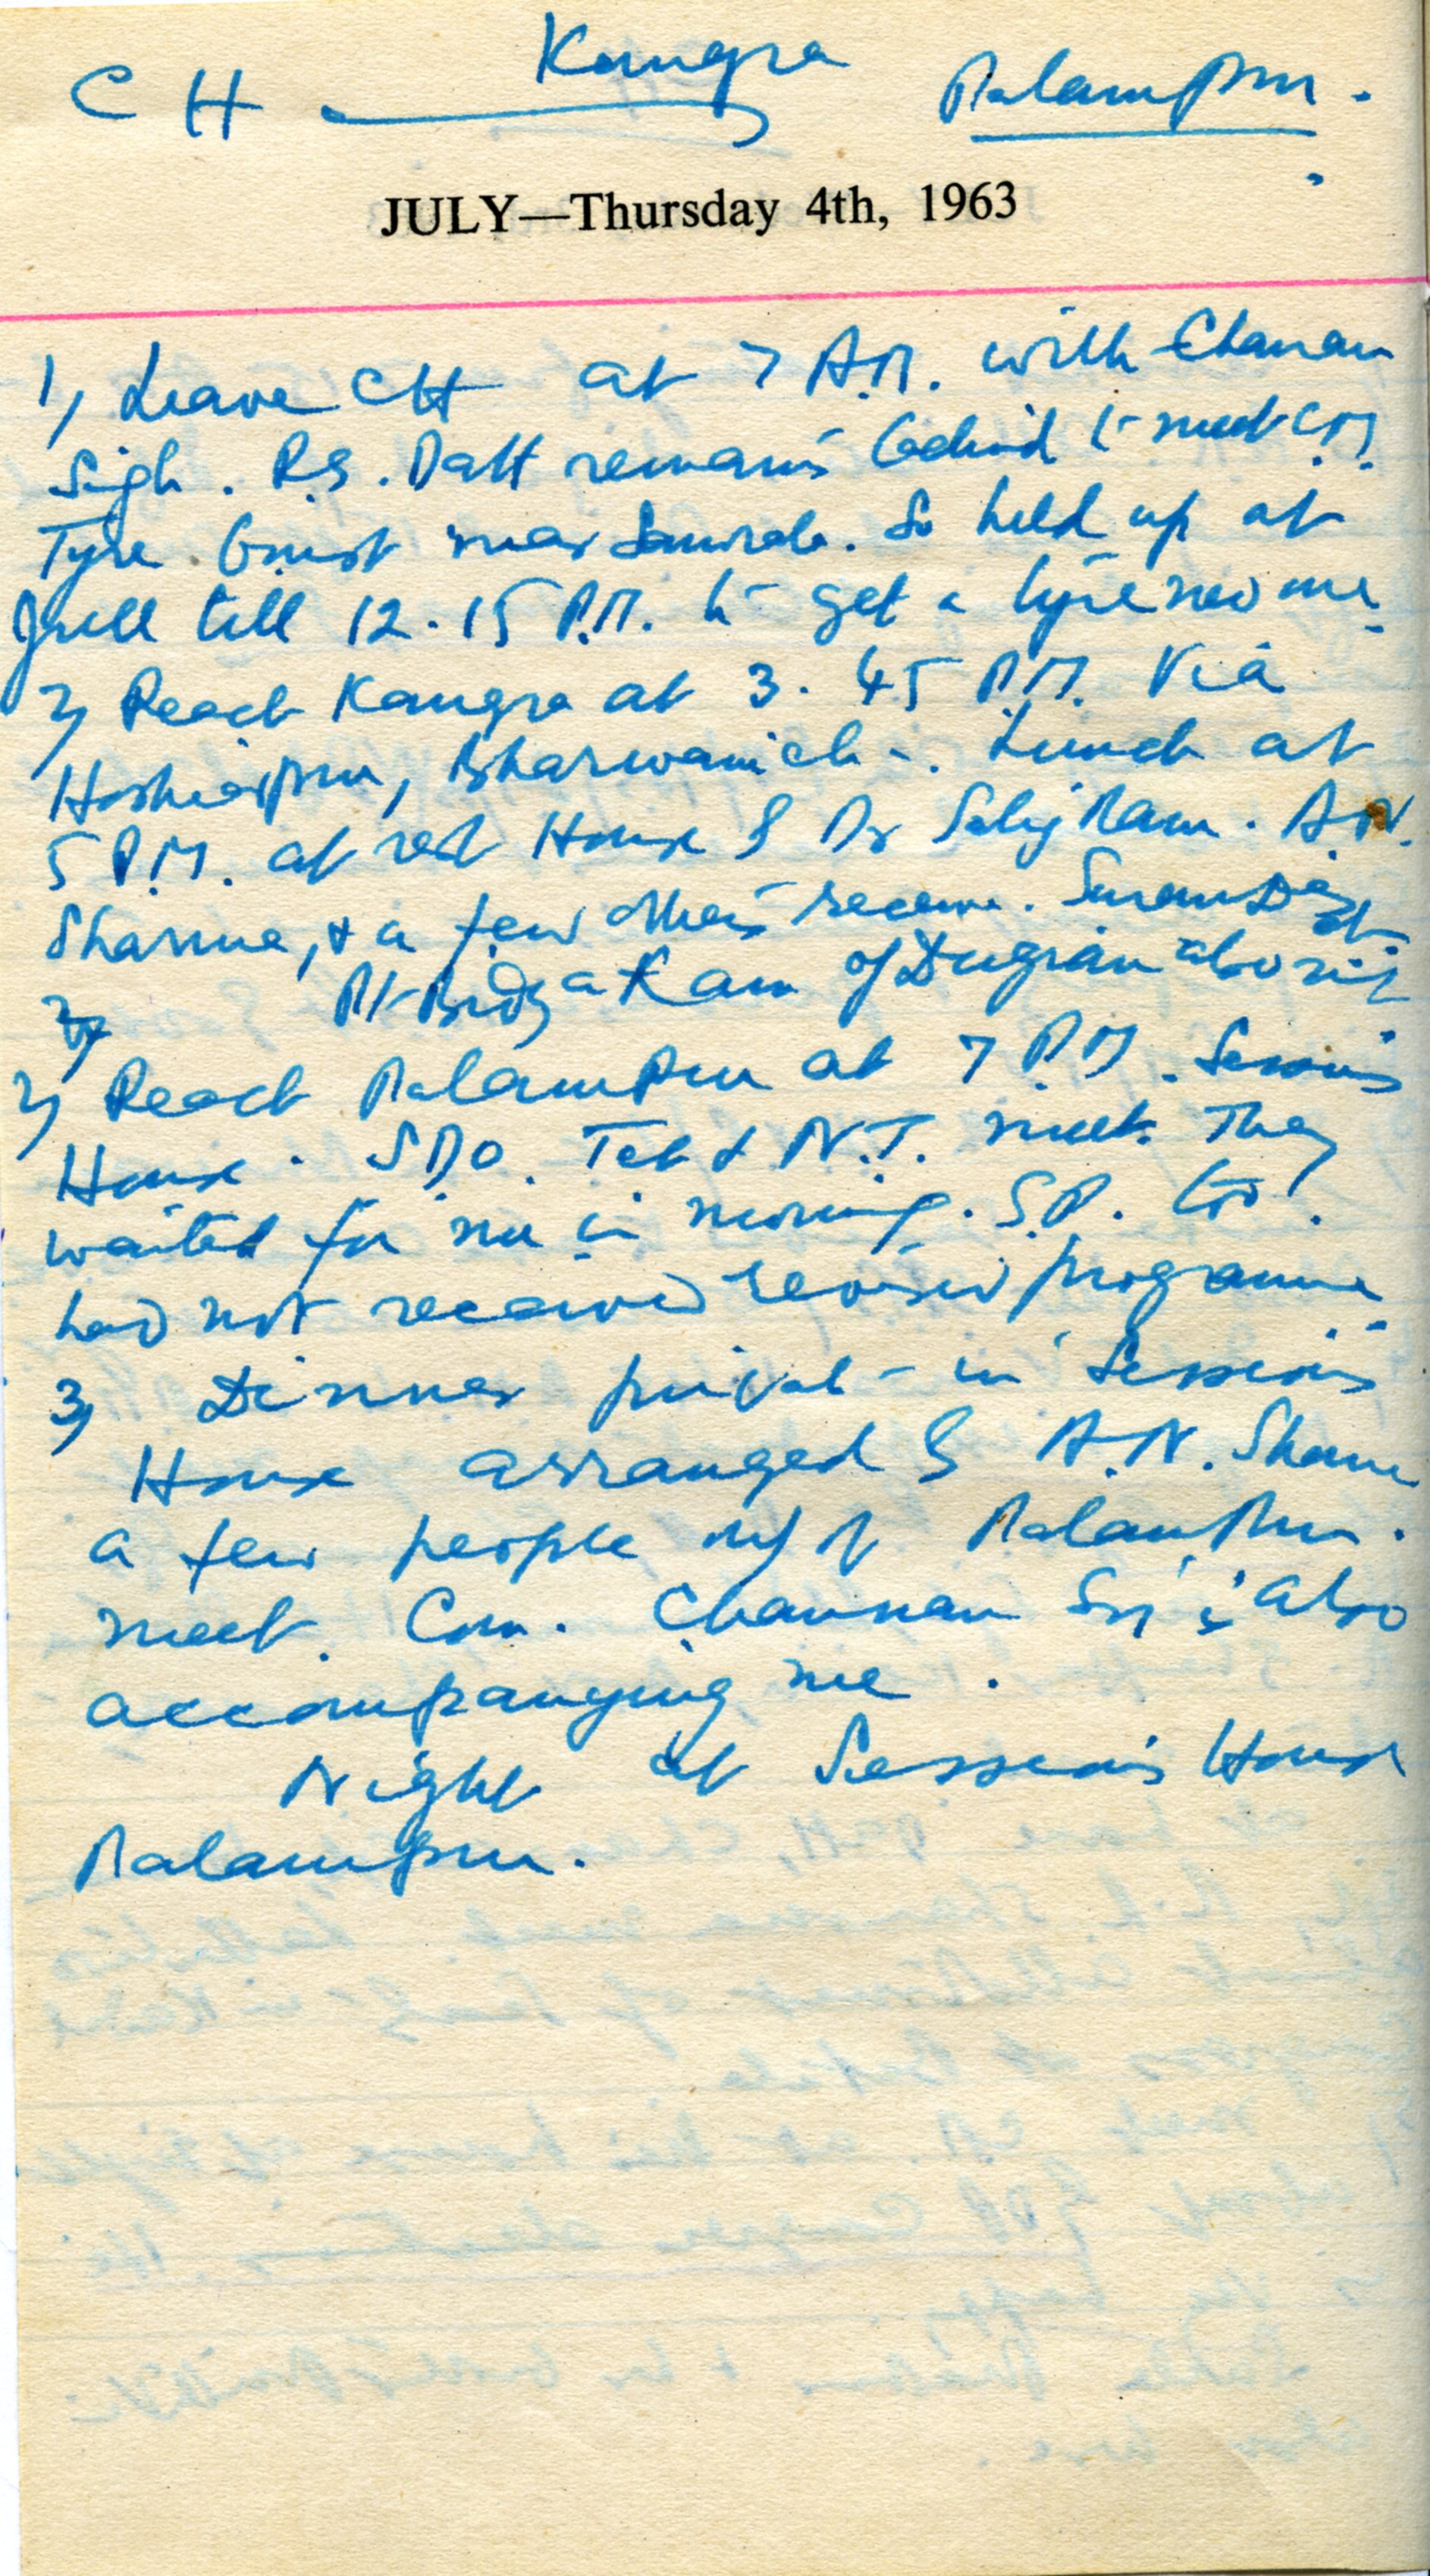 Kangra
CH Palampur.
JULY—Thursday 4th, 1963
1) Leave CH at 7 A.M. with Chanan
Singh. P.S. Datt remains behind to meet C.M.
Tyre burst near . So held up at
Jull till 12.15 P.M. to get a tyre new one.
2) Reach Kangra at 3.45 P.M. Via
Hoshiarpur, Bharwain . Lunch at
5 P.M. at rest House & Dr Salig Ram. A.N.
Sharma, & a few others receive.
Pt Ram of also
2) Reach Palampur at 7 P.M. Sessions
House. SDO. Teh & N.T. meet. They
waited for me in morning. S.P. too.
had not received revised programme.
3) Dinner private in Sessions
House arranged by A.N. Sharma
a few people of Palampur.
meet. Com. Channan Singh is also
accompanying me.
Night at Sessions House
Palampur.